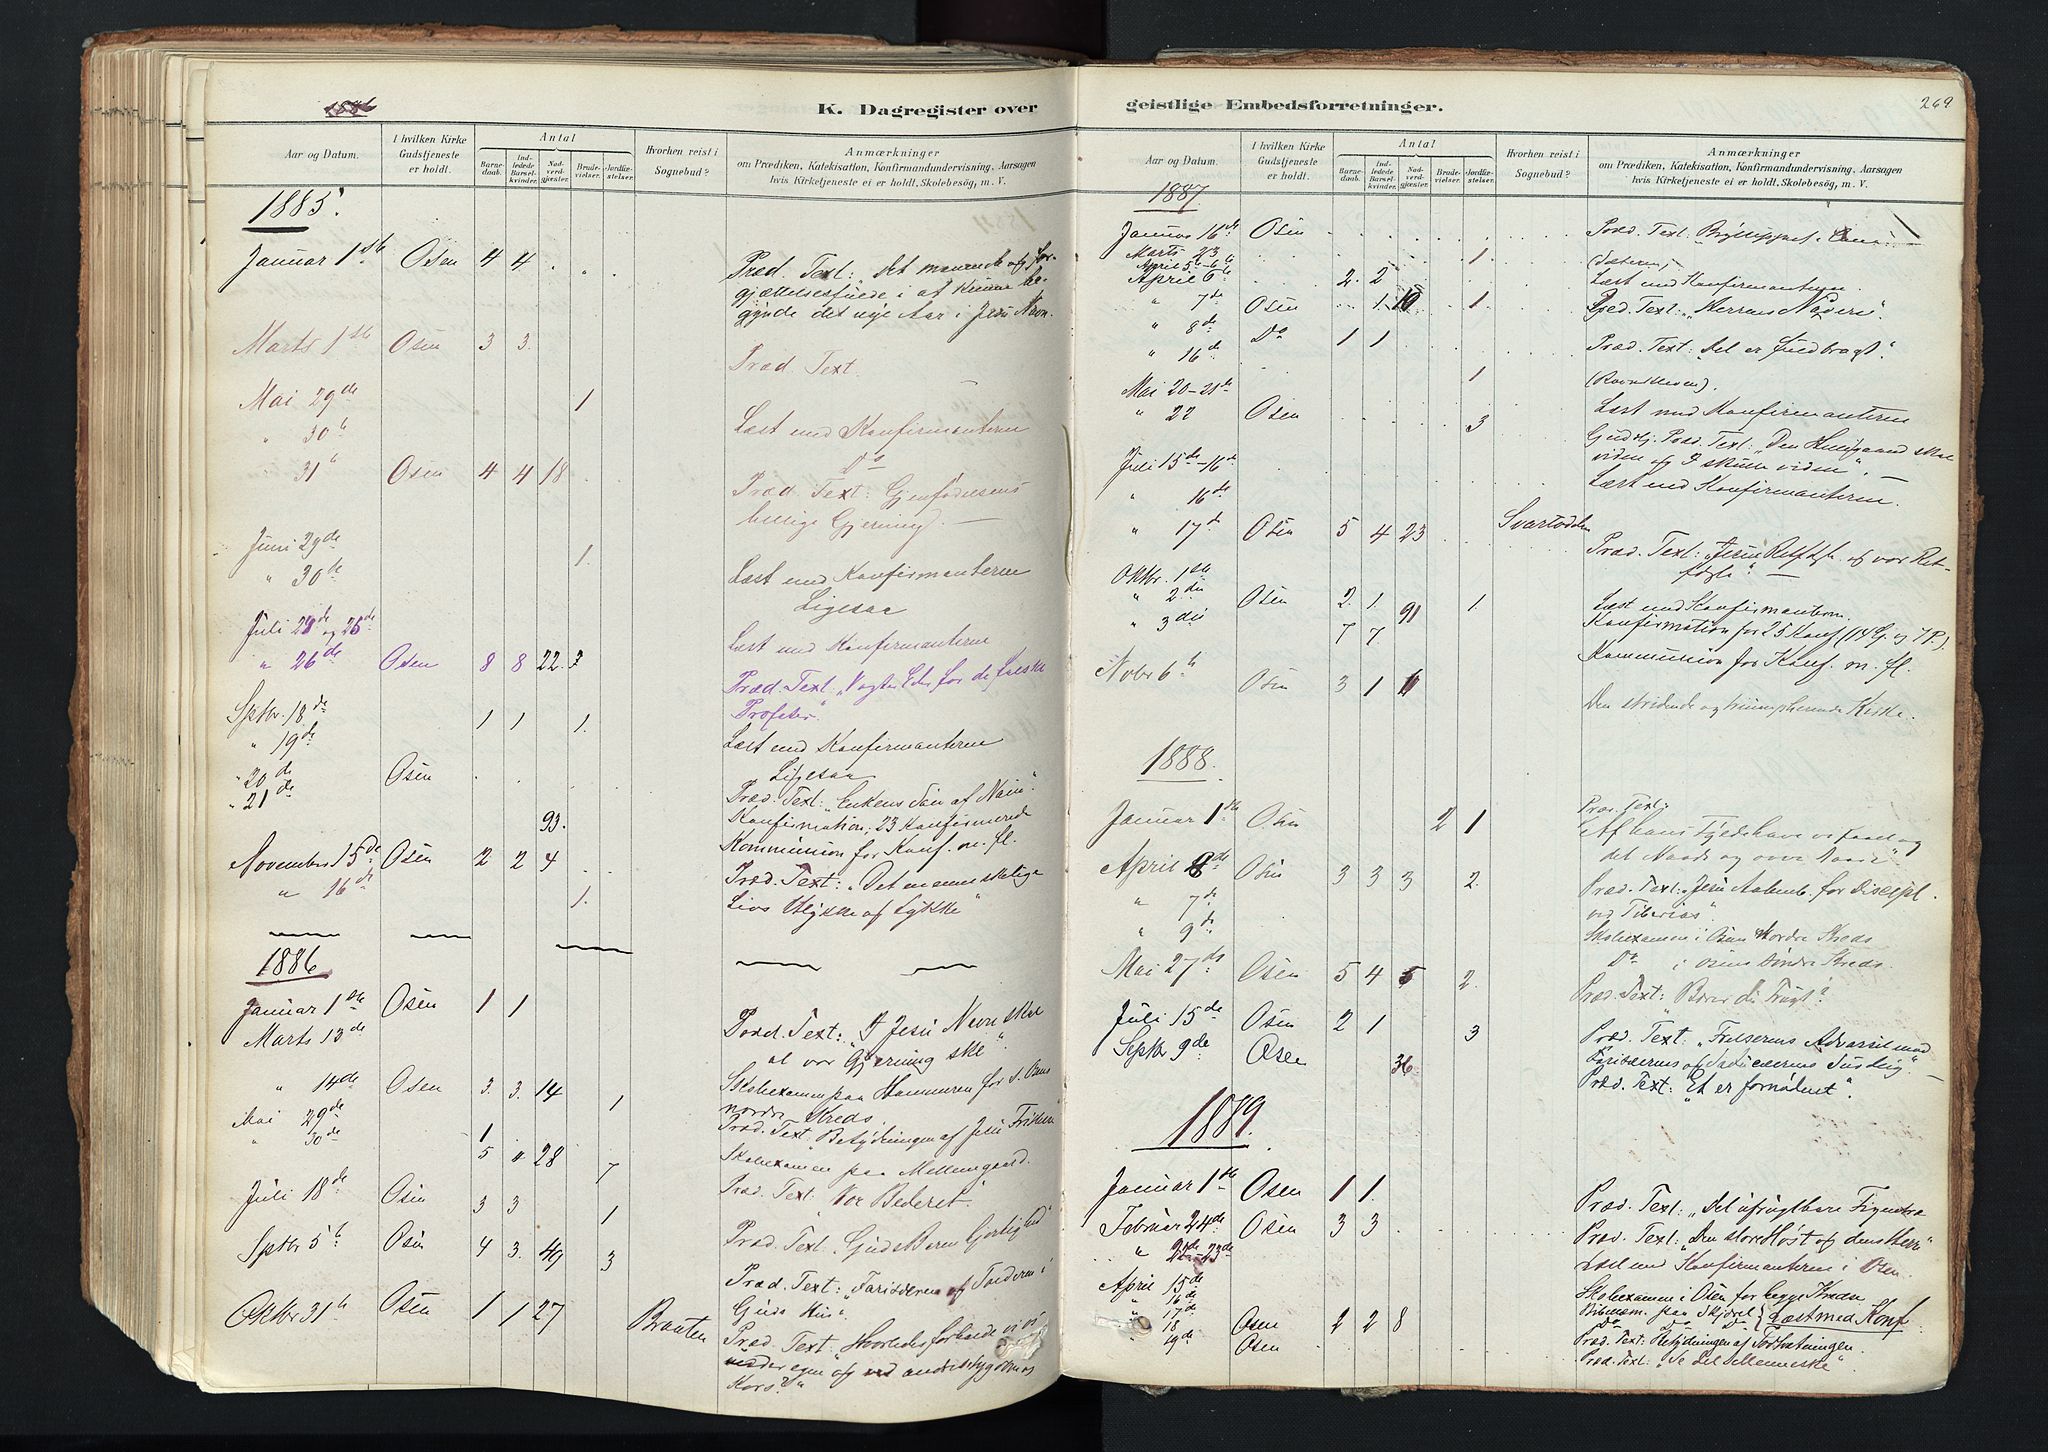 1886
K. Dagregister over
Aar og Datum.
I hvilken Kirke Gudstjeneste er holdt.
Antal
Barnedaab.
Indledede Barselkvinder.
Nadverdgjæster.
Brudevielser.
Jordfæstelser.
Hvorhen reist i Sognebud?
Anmærkninger
om Prædiken, Katekisation, Konfirmandundervisning, Aarsagen
hvis Kirketjeneste ei er holdt, Skolebesøg, m. V.
1885.
Januar 1ste Osen 4 4 Præd. Text: Det manende og for-
gjættelsesfulde i at kunne be-
gynde det nye Aar i Jesu Navn.
Marts 1ste Osen 3 3. Præd. Text.
Mai 29de 1 Læst med Konfirmanterne
" 30te Do
" 31te Osen 4 4 18 Præd. Text: Gjenfødelsens
hellige Gjerning.
Juni 29de 1. Læst med Konfirmanterne
" 30te Ligesaa
Juli 25de Læst med Konfirmanterne
" 26de Osen 8 8 22 Præd. Text: "Vogter Eder for de falske
Profeter".
Sptbr. 18de 1 1 1. Læst med Konfirmanterne
" 19de Ligesaa
" 20de Osen Præd. Text: "Enkens Søn af Nain".
" 21de 93. Konfirmation; 23 Konfirmerede
Kommunion for Konf. m. fl.
November 15de Osen 2 2 4 Præd. Text: "Det menneskelige
Livs Ulykke og Lykke"
" 16de 1.
1886
Januar 1ste Osen 1 1 Præd. Text: "I Jesu Navn skal
al vor Gjerning ske".
Marts 13de Skolexamen paa Hammeren for
nordre Kreds
" 14de Osen 3. 3. 14 1 Præd. Text Betydningen af Jesu
Mai 29de 1 Skolexamen paa Mellemgaard.
" 30de 5 " 28 7 Præd. Text: "Vor Bederet".
Juli 18de Osen 3 3 1 Præd. Text: Guds Børn
Sptbr 5te Osen 4 3. 49 3 Præd. Text: "Farisæeren og Tolderen i
Guds Hus".
Oktbr 31te Osen 1 1 27 Branten Præd. Text: Hvorledes forholde vi os
under egen og ved andres Sygdom og
Kors?"
geistlige Embedsforretninger.
269
Aar og Datum.
I hvilken Kirke Gudstjeneste er holdt.
Antal
Barnedaab.
Indledede Barselkvinder.
Nadverdgjæster.
Brudevielser.
Jordfæstelser.
Hvorhen reist i Sognebud?
Anmærkninger
om Prædiken, Katekisation, Konfirmandundervisning, Aarsagen
hvis Kirketjeneste ei er holdt, Skolebesøg, m. V.
1887.
Januar 16de Osen Præd. Text: Brylluppet i Cana.
Marts 23 1.
April 5te-6te Læst med Konfirmanterne.
April 6te 2 2
" 7de Osen 1 10 1 Præd. Text: "Herrens Nadvere".
" 8de Do 1 1 Præd. Text: "Det er fuldbragt".
" 16de 1
Mai 20-21de Læst med Konfirmanterne
" 22 Osen 3 Gudstj. Præd. Text:
Juli 15de-16de
" 16de Læst med Konfirmanterne.
" 17de Osen 5 4 23 Svartodden Præd. Text: "Jesu Retf. og vor Ret-
Oktbr. 1ste
" 2den Osen 2. 1. 1. Læst med Konfirmanterne
" 3die 7 7 91 Konfirmation for 25 Konf
Kommunion for Konf. m. fl.
Novbr 6te Osen 3 1 Den stridende og triumpherende Kirke.
1888.
Januar 1ste Osen 2 1 Præd. Text:
"Af hans Fylde have vi faaet og
det Naade og over Naade"
April 8de Osen 3 3 3 2. Præd. Text: Jesu Aabenb. for Discipl.
ved Tiberias".
" 7de Skolexamen i Osens Nordre Kreds
" 9de Do i Osens Søndre Kreds.
Mai 27de Osen 5 4 5 2. Præd. Text: "Bærer du Frugt?
Juli 15de Osen 2 1 3 Præd. Text: "Frelserens Advarsel mod
Farisæernes og Sadducæernes Surdeig".
Septbr 9de Osen 36 Præd. Text: "Et er fornødent".
1889.
Januar 1ste Osen 1 1. Præd. Text: "Det ufrugtbare Figentræ
Februar 24de Osen 3 3 Præd. Text: "Den store Høst og dens Herre"
" 22de-23de Læst med Konfirmanterne i Osen.
April 15de Skolexamen i Osen for begge Kredse
" 16de
" 17de Do Do Do Læst med Konf.
" 18 Osen 2 2 8 Præd. Text: Betydningen af
" 19de Osen Præd. Text: "Se det Menneske"